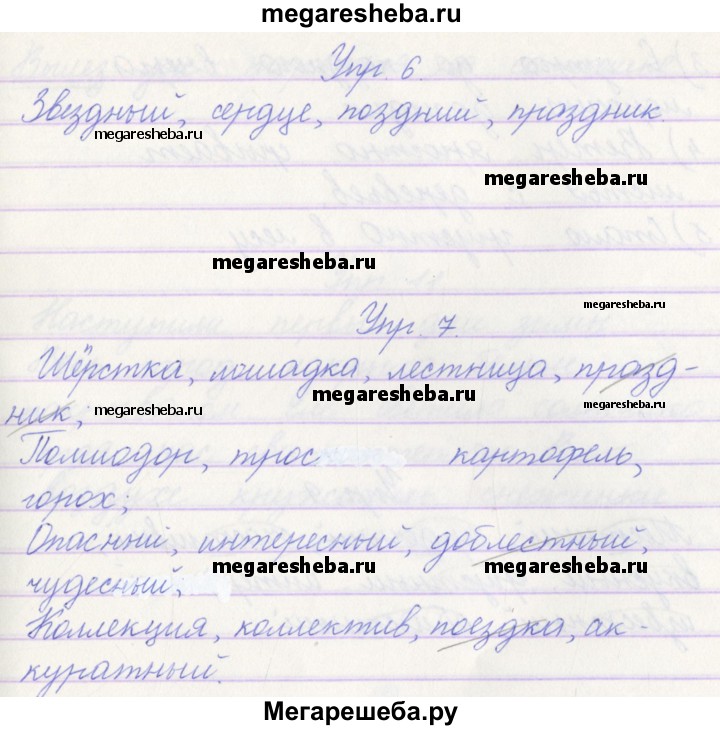 megaresheba.ru
Упр 6.
Звездный, сердце, поздний, праздник.
megaresheba.ru
megaresheba.ru
megaresheba.ru
megaresheba.ru
Упр. 7.
Шёрстка, лошадка, лестница, празд-
megaresheba.ru
ник; megaresheba.ru megaresheba.ru
Помиодор, трос картофель,
горох;
Опасний, интересный, доблестный,
megaresheba.ru megaresheba.ru
чудесный,
Коллекция, коллектив, поездка, ак-
куратный.
Мегарешеба.ру